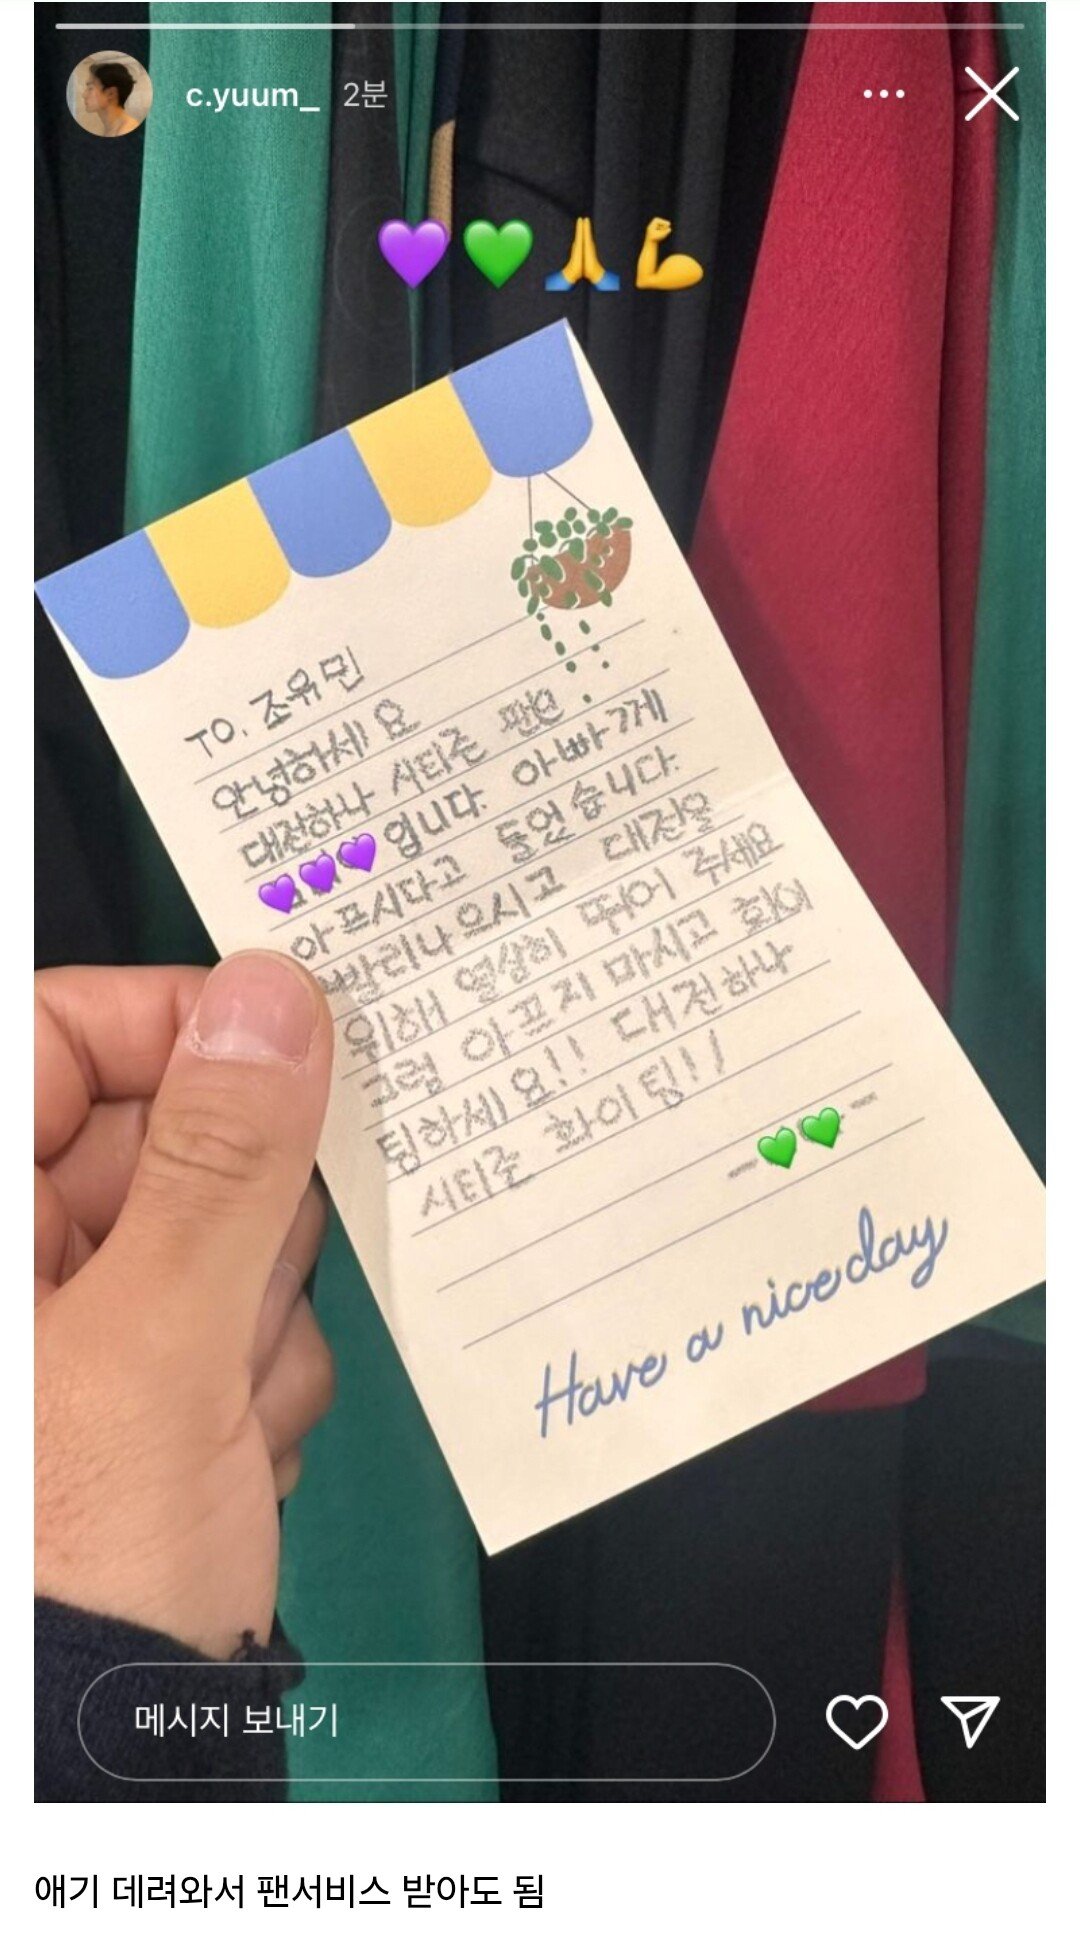 c.yuum_ 2분
TO. 조유민
안녕하세요
대전하나 시티즌 팬인
입니다. 아빠가게
아프시다고 들었습니다.
빨리나으시고 대전을
위해 열심히 뛰어 주세요
그럼 아프지 마시고 화이
팅하세요!! 대전하나
시티즌 화이팅!!
Have a nice day
메시지 보내기
애기 데려와서 팬서비스 받아도 됨